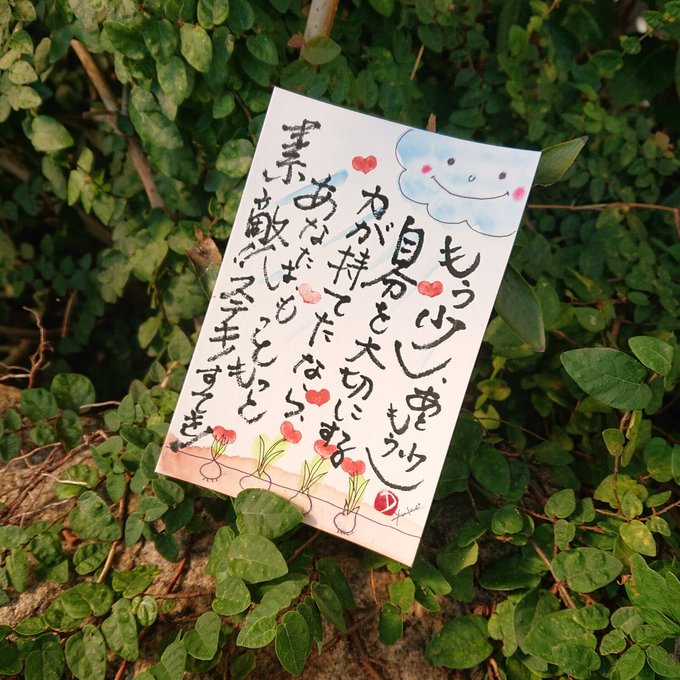 もう少し、あともう少し
自分を大切にする
力が持てたなら、
あなたは、もっともっと
素敵ステキすてき
Yuko